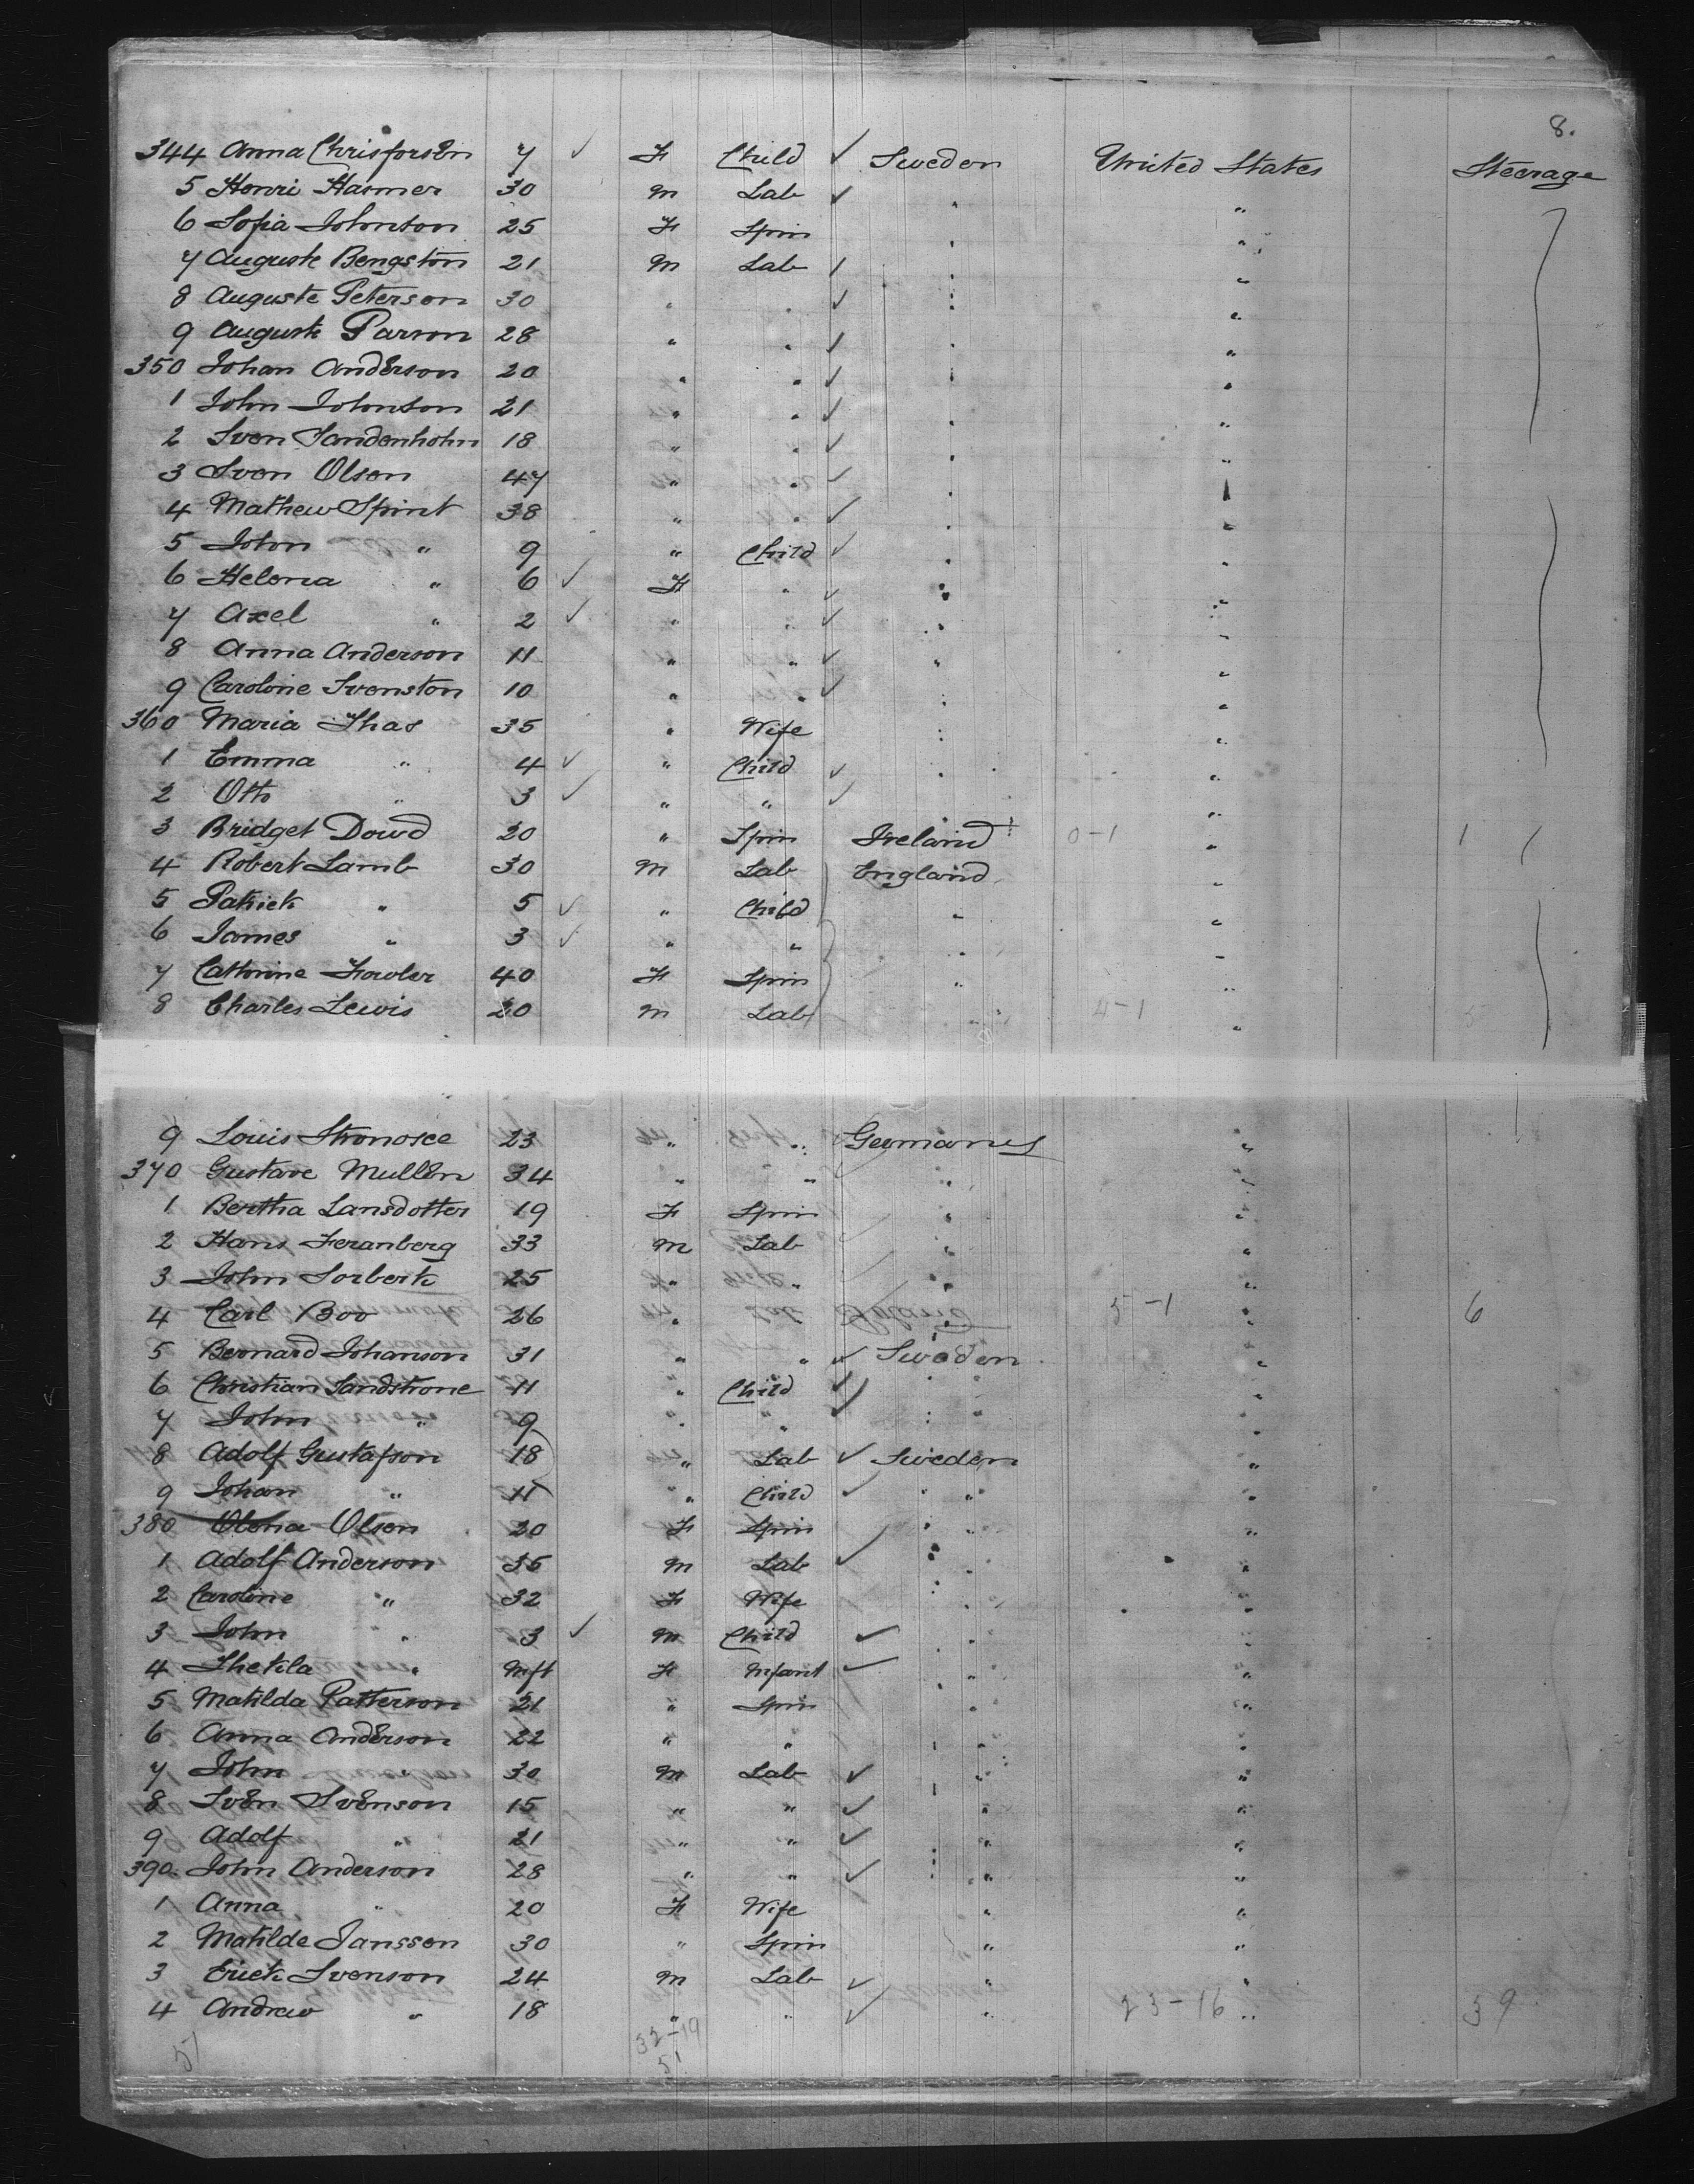 8.
344 Anna Chrisforsen 7 ✓ F Child ✓ Sweden United States Steerage
5 Henri Hasmer 30 M Lab ✓ " "
6 Sofia Johnton 25 F Spin " "
7 Auguste Bengston 21 M Lab ✓ " "
8 Auguste Peterson 30 " " ✓ " "
9 Auguste Parson 28 " " ✓ " "
350 Johan Anderson 20 " " ✓ " "
1 John Johnton 21 " " ✓ " "
2 Sven Sandenhohn 18 " " ✓ " "
3 Sven Olsen 47 " " ✓ " "
4 Mathew Sprint 38 " " ✓ " "
5 John " 9 " Child ✓ " "
6 Helena " 6 ✓ F " ✓ " "
7 Axel " 2 ✓ " " ✓ " "
8 Anna Anderson 11 " " ✓ " "
9 Caroline Svenston 10 " " ✓ " "
360 Maria Thas 35 " Wife " "
1 Emma " 4 ✓ " Child ✓ " "
2 Otto " 3 ✓ " " ✓ " "
3 Bridget Dowd 20 " Spin Ireland 0-1 " 1
4 Robert Lamb 30 M Lab England "
5 Patrick " 5 ✓ " Child " "
6 James " 3 ✓ " " " "
7 Cathrine Fowler 40 F Spin " "
8 Charles Lewis 20 M Lab " 4-1 "
9 Louis Stronosce 23 " " Germany "
370 Gustave Mullen 34 " " " "
1 Bertha Lansdotter 19 F Spin " "
2 Hans Feranberg 33 M Lab " "
3 John Sorberk 25 " " " "
4 Carl Boo 26 " 5-1 " 6
5 Bernard Johanson 31 " " ✓ Sweden "
6 Christian Sandstrone 11 " Child ✓ " "
7 John " 9 " " ✓ " "
8 Adolf Gustafson 18 " Lab ✓ Sweden "
9 Johan " 11 " Child ✓ " "
380 Olena Olsen 20 F Spin " "
1 Adolf Anderson 35 M Lab ✓ " "
2 Caroline " 32 F Wife " "
3 John " 3 ✓ M Child ✓ " "
4 Thekla " Inft F Infant ✓ " "
5 Matilda Patterson 21 " Spin " "
6 Anna Anderson 22 " " " "
7 John " 30 M Lab ✓ " "
8 Sven Svenson 15 " " ✓ " "
9 Adolf " 21 " " ✓ " "
390 John Anderson 28 " " ✓ " "
1 Anna " 20 F Wife " "
2 Matilde Jansson 30 " Spin " "
3 Erick Svenson 24 M Lab ✓ " "
4 Andrew " 18 " " ✓ " 23-16 " 39
51 32-19
51